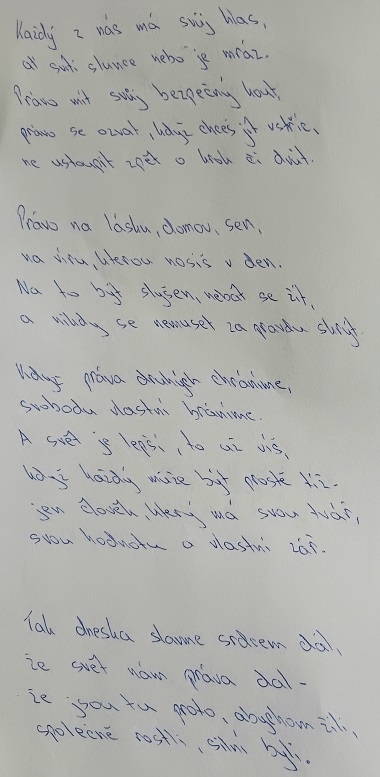 Každý z nás má svůj hlas,
ať svítí slunce nebo je mráz.
Právo mít svůj bezpečný kout,
právo se ozvat, když chceš jít vstříc,
ne ustoupit zpět o krok či dvít.

Právo na lásku, domov, sen,
na víru, kterou nosíš v den.
Na to být slyšen, nebát se žít,
a nikdy se nemuset za pravdu skrýt.

Když práva druhých chráníme,
svobodu vlastní bráníme.
A svět je lepší, to už víš,
když každý může být prostě
jen člověk, který má svou tvář,
svou hodnotu a vlastní zář.

Tak dneska slavme srdcem dál,
že svět nám práva dal -
že jsou tu proto, abychom žili,
společně rostli, silní byli.